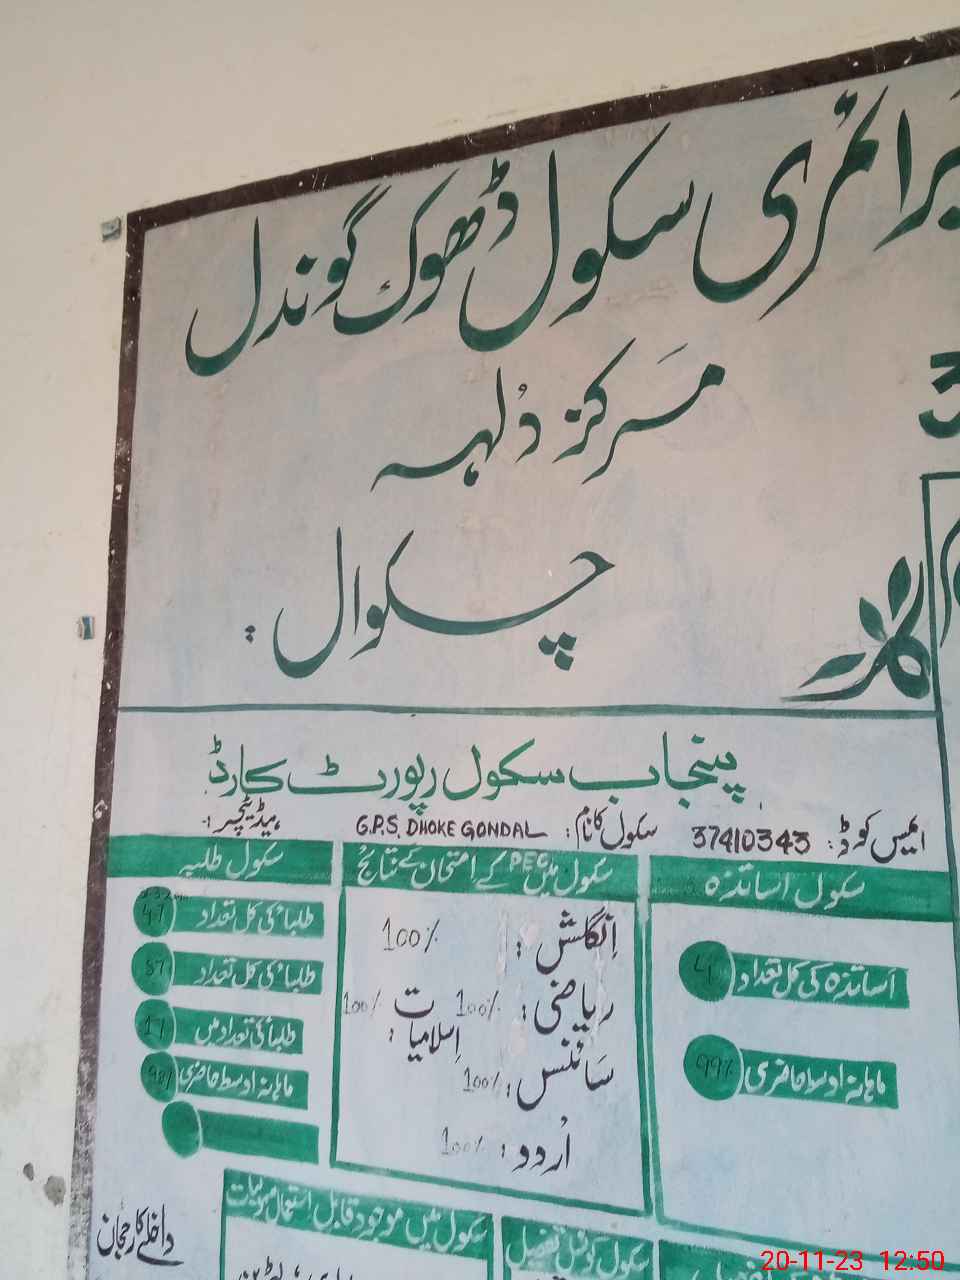 پرائمری سکول ڈھوک گوندل
مرکز دُلہہ
چکوال
پنجاب سکول رپورٹ کارڈ
ایمس کوڈ: 37410343 سکول کا نام: G.P.S. DHOKE GONDAL ہیڈ ٹیچر:
سکول اساتذہ
اساتذہ کی کل تعداد
ماہانہ اوسط حاضری 99%
سکول میں PEC کے امتحان کے نتائج
انگلش: 100%
ریاضی: 100%
اسلامیات: 100%
سائنس: 100%
اُردو: 100%
سکول طلبہ
طلباء کی کل تعداد 47
طلباء کی کل تعداد
طلباء کی تعداد میں
ماہانہ اوسط حاضری
سکول میں موجود قابل استعمال سہولیات
سکول کونسل تفصیل
داخلے کا رجحان
20-11-23 12:50